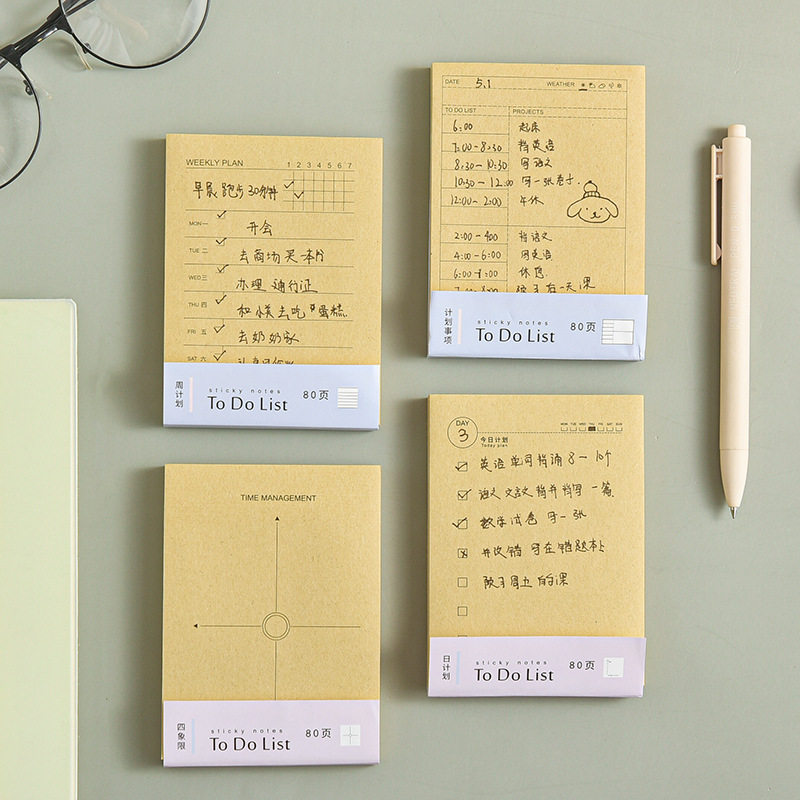 WEEKLY PLAN
1 2 3 4 5 6 7
早晨 跑步 30分钟
MON 一 开会
TUE 二 去商场买本
WED 三 办理 通行证
THU 四 和小美去吃 蛋糕
FRI 五 去奶奶家
SAT 六
周计划
sticky notes
To Do List
80页
DATE 5.1 WEATHER
TO DO LIST PROJECTS
6:00 起床
7:00-8:30 背英语
8:30-10:30 写语文
10:30-12:00 写一张卷子
12:00-2:00 午休
2:00-4:00 背语文
4:00-6:00 写英语
6:00-7:00 休息
7:00-8:00 预习后一天课
计划事项
sticky notes
To Do List
80页
TIME MANAGEMENT
四象限
sticky notes
To Do List
80页
DAY 3
今日计划
Today plan
MON TUE WED THU FRI SAT SUN
英语单词背诵 8-10个
语文 文言文背并背写一篇
数学试卷 写一张
并改错 写在错题本上
预习周五的课
日计划
sticky notes
To Do List
80页